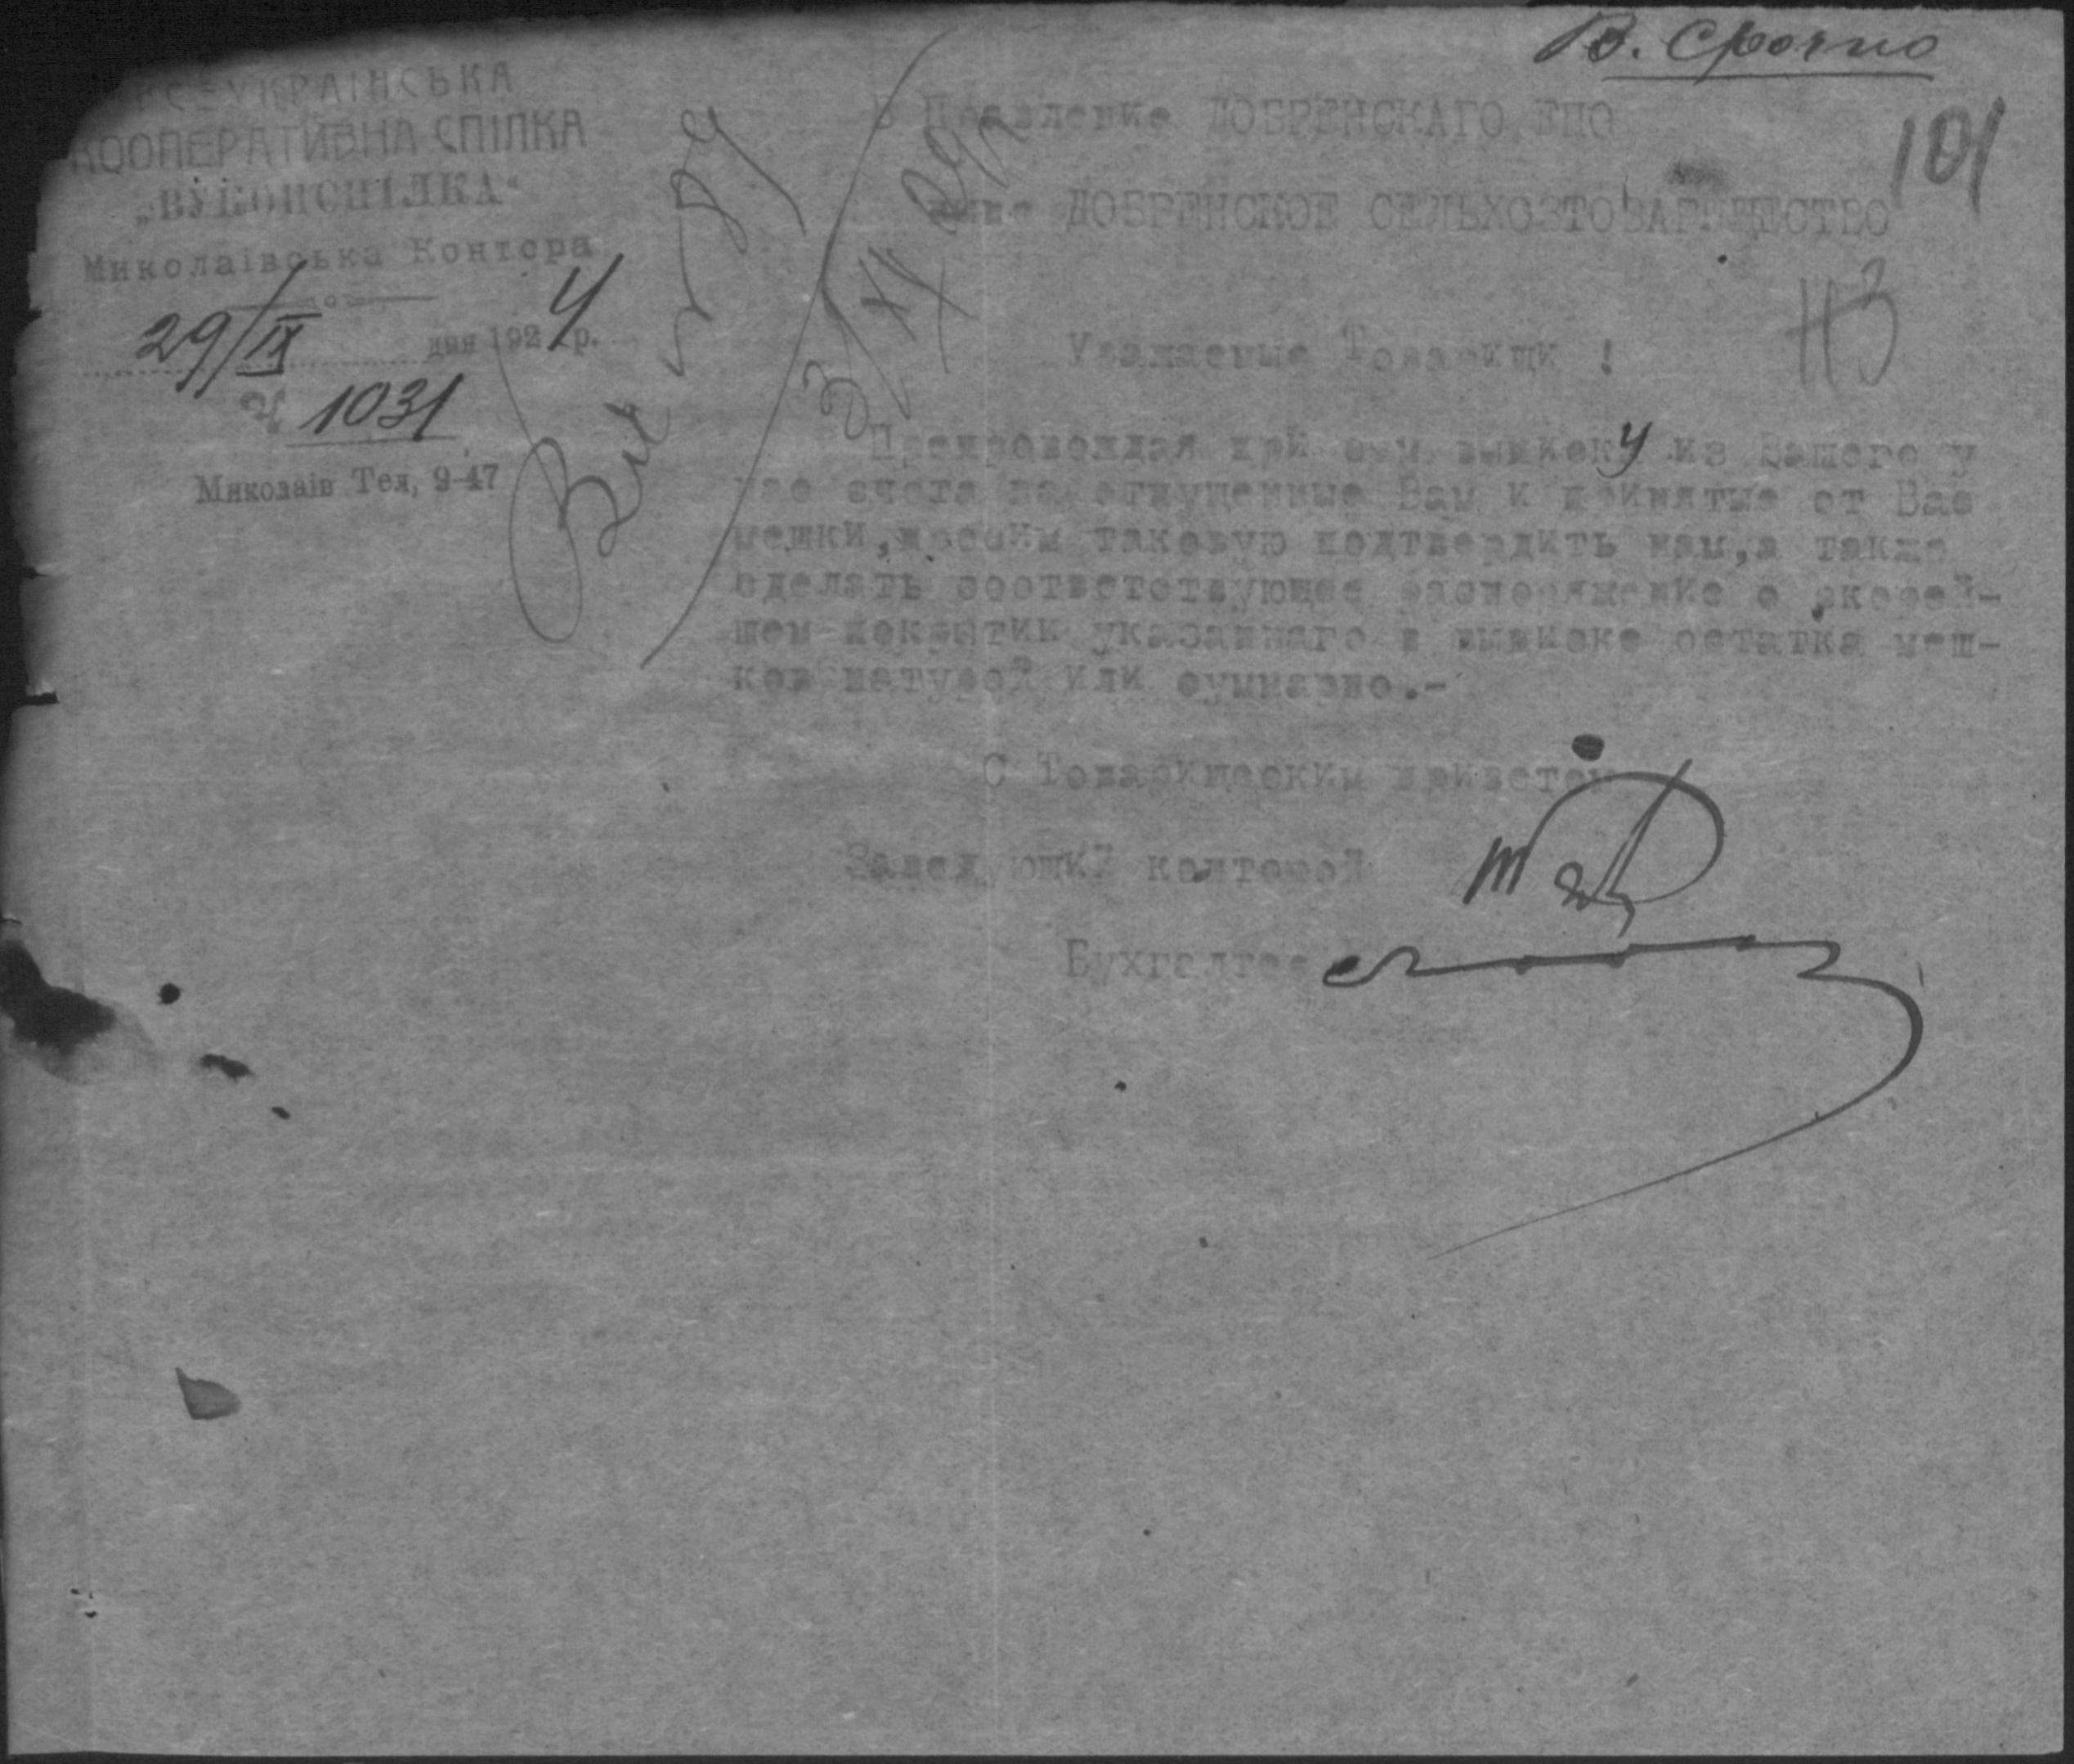 В. Срочно
101
ВСЕУКРАІНСЬКА
КООПЕРАТИВНА СПІЛКА
„ВУКОПСПІЛКА“
Миколаівська Контора
29/IX дня 1924 р.
№ 1031
Миколаів Тел, 9-47
В Правление ДОБРЕНСКАГО ЕПО
ДОБРЕНСКОЕ СЕЛЬХОЗТОВАРИЩЕСТВО
113
Уважаемые Товарищи !
Препровождая при сем выписку из Вашего у
нас счета на отпущенные Вам и принятые от Вас
мешки, просим таковую подтвердить нам, а также
сделать соответствующее распоряжение о скорей-
шем покрытии указаннаго в выписке остатка меш-
ков натурой или суммарно.-
С Товарищеским приветом
Заведующий конторой
Бухгалтер